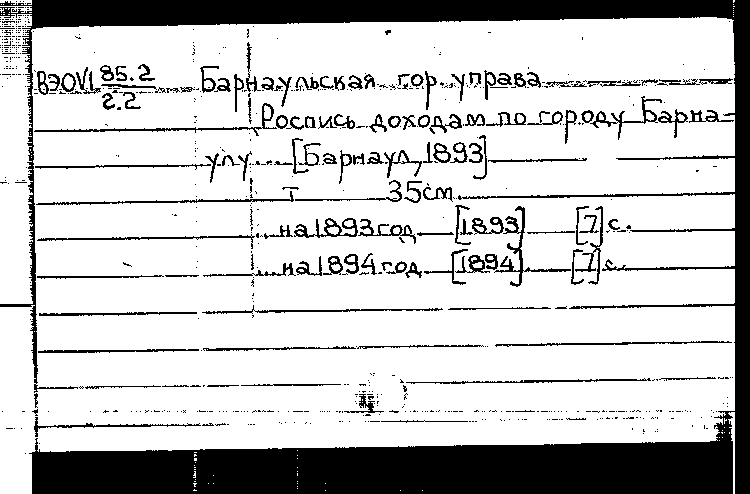 ВЭОVI 85.2 Барнаульская гор. управа
г.2
Роспись доходам по городу Барна=
улу... [Барнаул, 1893]
т 35см.
...на 1893 год [1893] [7] с.
...на 1894 год [1894]. [7] с.